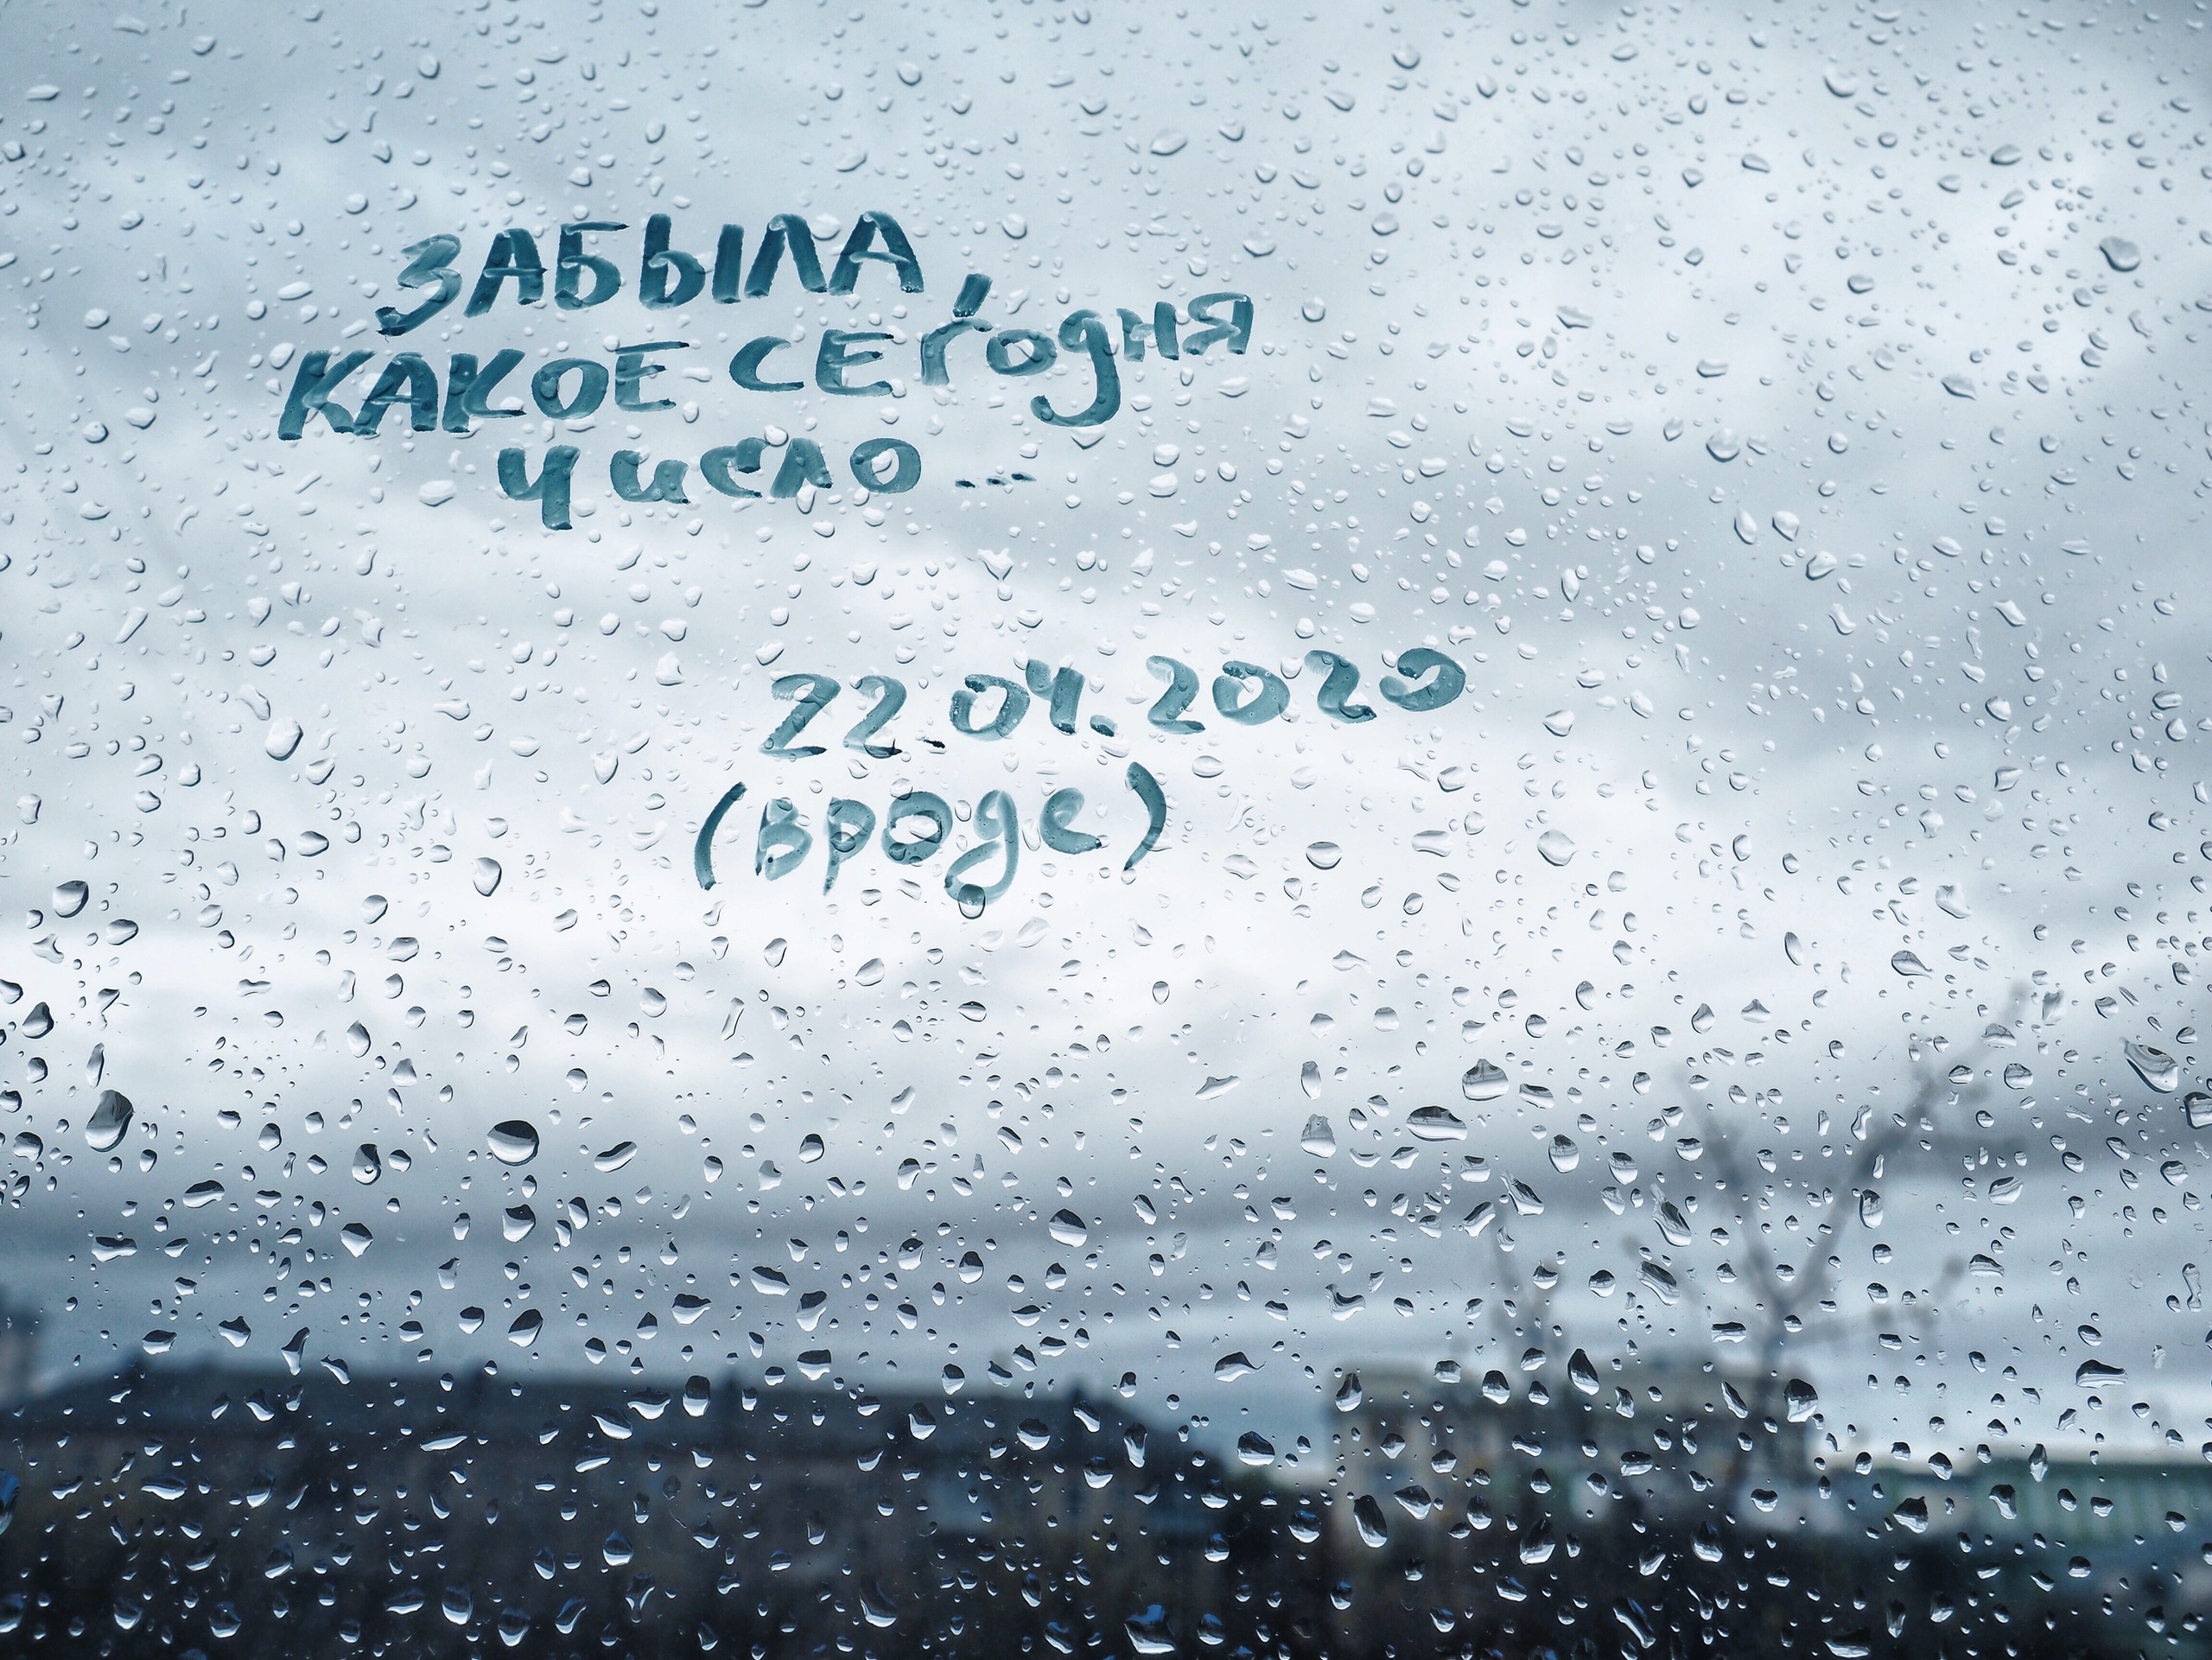 ЗАБЫЛА,
КАКОЕ СЕГОДНЯ
число...
22.04.2020
(вроде)